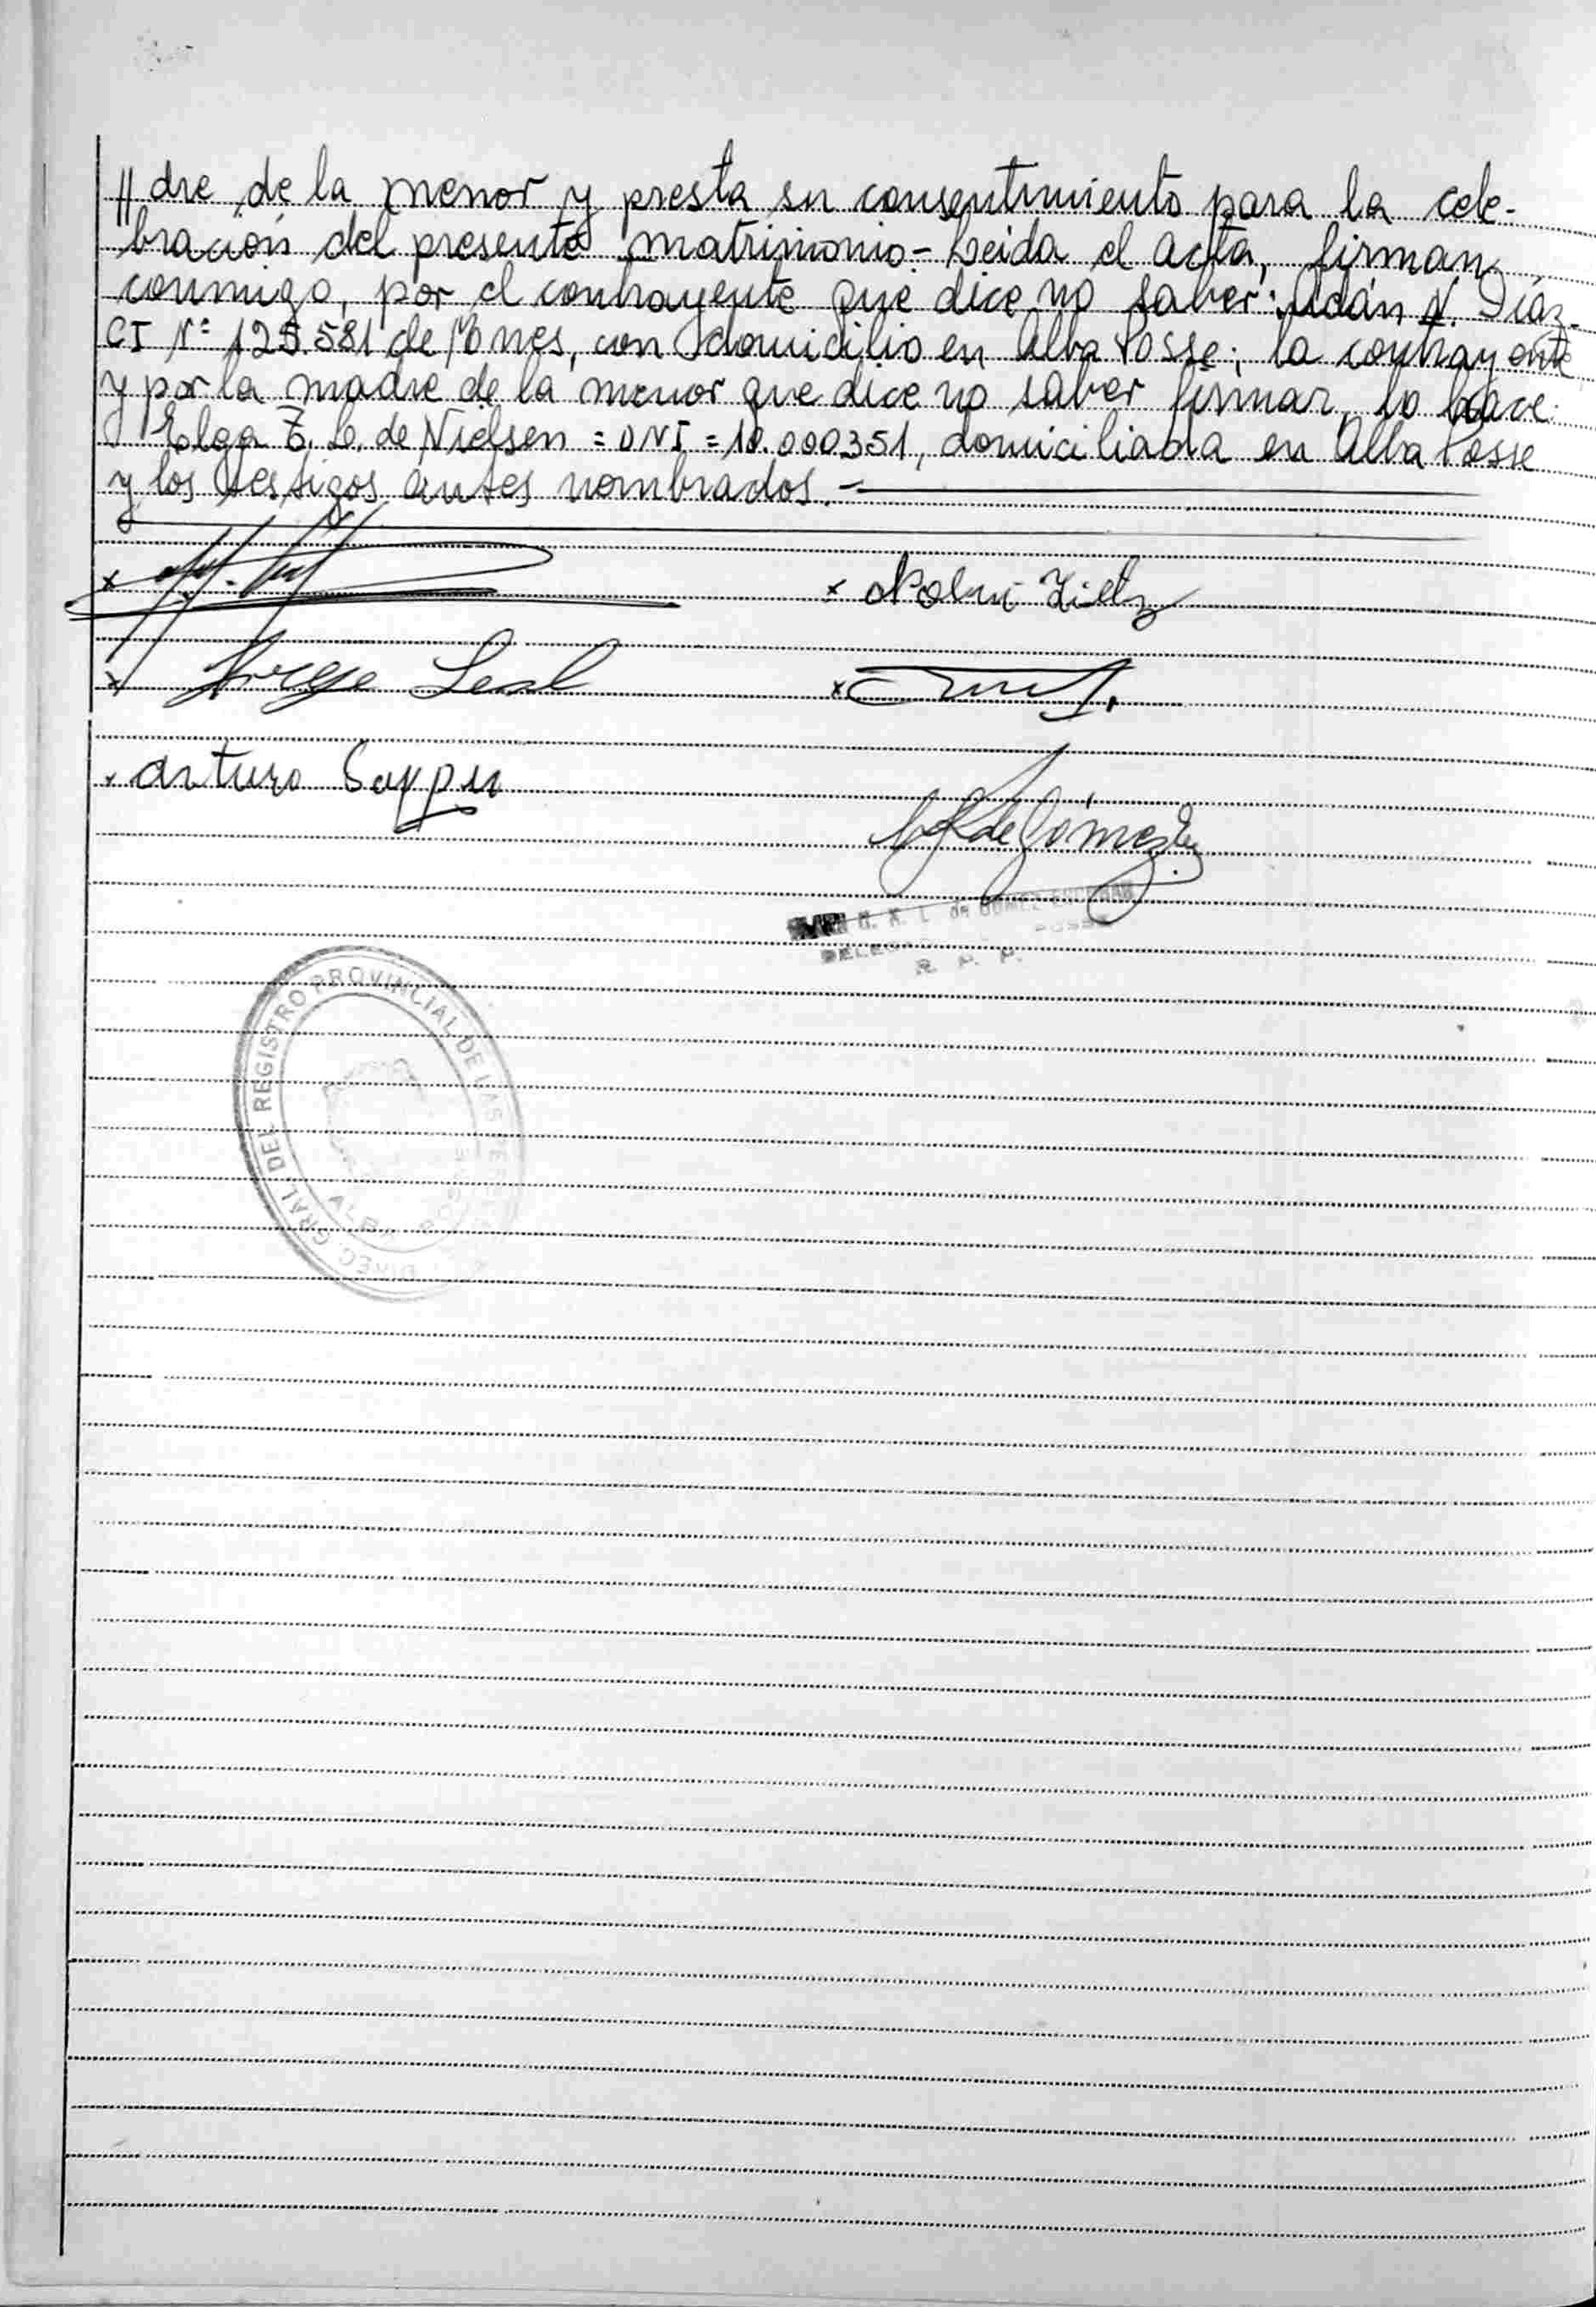 // dre de la menor y presta su consentimiento para la cele-
bración del presente matrimonio.- Leída el acta, firman
conmigo, por el contrayente que dice no saber: Adán N. Díaz-
CI Nº 125.581 de Mnes, con domicilio en Alba Posse; la contrayente
y por la madre de la menor que dice no saber firmar, lo hace:
Elga Z. L. de Nielsen = DNI = 10.000351, domiciliada en Alba Posse
y los testigos antes nombrados.-
x
x
x Jorge Leal
x
x Arturo
de Gómez
G. K. L. de GOMEZ
R. P. P.
DIREC. GRAL. DEL REGISTRO PROVINCIAL DE LAS
ALBA POSSE